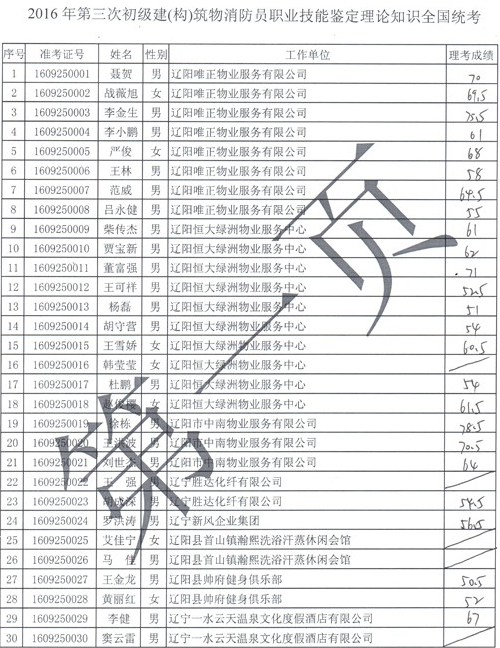 2016 年第三次初级建(构)筑物消防员职业技能鉴定理论知识全国统考
序号 准考证号 姓名 性别 工作单位 理考成绩
1 1609250001 聂贺 男 辽阳唯正物业服务有限公司 70
2 1609250002 战薇旭 女 辽阳唯正物业服务有限公司 69.5
3 1609250003 李金生 男 辽阳唯正物业服务有限公司 75.5
4 1609250004 李小鹏 男 辽阳唯正物业服务有限公司 61
5 1609250005 严俊 女 辽阳唯正物业服务有限公司 68
6 1609250006 王林 男 辽阳唯正物业服务有限公司 58
7 1609250007 范威 男 辽阳唯正物业服务有限公司 64.5
8 1609250008 吕永健 男 辽阳唯正物业服务有限公司 55
9 1609250009 柴传杰 男 辽阳恒大绿洲物业服务中心 61
10 1609250010 贾宝新 男 辽阳恒大绿洲物业服务中心 62
11 1609250011 董富强 男 辽阳恒大绿洲物业服务中心 71
12 1609250012 王可祥 男 辽阳恒大绿洲物业服务中心 52.5
13 1609250013 杨磊 男 辽阳恒大绿洲物业服务中心 51
14 1609250014 胡守营 男 辽阳恒大绿洲物业服务中心 54
15 1609250015 王雪娇 女 辽阳恒大绿洲物业服务中心 60.5
16 1609250016 韩莹莹 女 辽阳恒大绿洲物业服务中心
17 1609250017 杜鹏 男 辽阳恒大绿洲物业服务中心 54
18 1609250018 女 辽阳恒大绿洲物业服务中心 61.5
19 1609250019 徐栋 男 辽阳市中南物业服务有限公司 78.5
20 1609250020 男 辽阳市中南物业服务有限公司 70.5
21 1609250021 男 辽阳市中南物业服务有限公司 64
22 1609250022 王强 男 辽宁胜达化纤有限公司
23 1609250023 男 辽宁胜达化纤有限公司 54.5
24 1609250024 罗洪涛 男 辽宁新风企业集团 56.5
25 1609250025 艾佳宁 女 辽阳县首山镇瀚熙洗浴汗蒸休闲会馆
26 1609250026 马佳 男 辽阳县首山镇瀚熙洗浴汗蒸休闲会馆
27 1609250027 王金龙 男 辽阳县帅府健身俱乐部 50.5
28 1609250028 黄丽红 女 辽阳县帅府健身俱乐部 52
29 1609250029 李健 男 辽宁一水云天温泉文化度假酒店有限公司 67
30 1609250030 窦云雷 男 辽宁一水云天温泉文化度假酒店有限公司
第一页